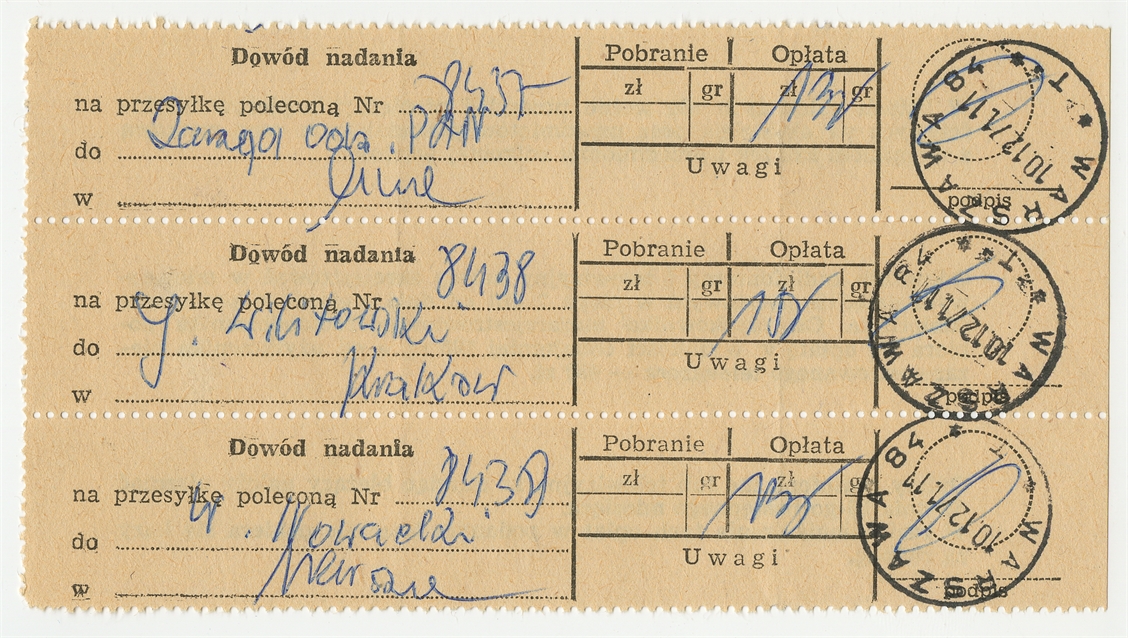 Dowód nadania
Pobranie Opłata
na przesyłkę poleconą Nr 8437
zł gr zł gr
do PAN
Uwagi
w
podpis
WARSZAWA 84
10.12.71.11
Dowód nadania
Pobranie Opłata
na przesyłkę poleconą Nr 8438
zł gr zł gr
do J.
Uwagi
w Kraków
podpis
WARSZAWA 84
10.12.71.11
Dowód nadania
Pobranie Opłata
na przesyłkę poleconą Nr 8439
zł gr zł gr
do W. Nowacki
Uwagi
w
podpis
WARSZAWA 84
10.12.71.11